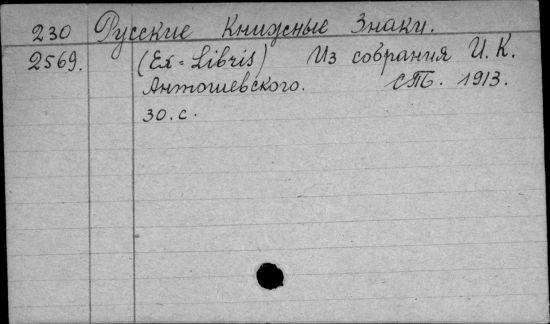 230 Русские Книжные Знаки.
2569. (Ex=Libris) Из собрания И. К.
Антошевского. СПб. 1913.
30. с.